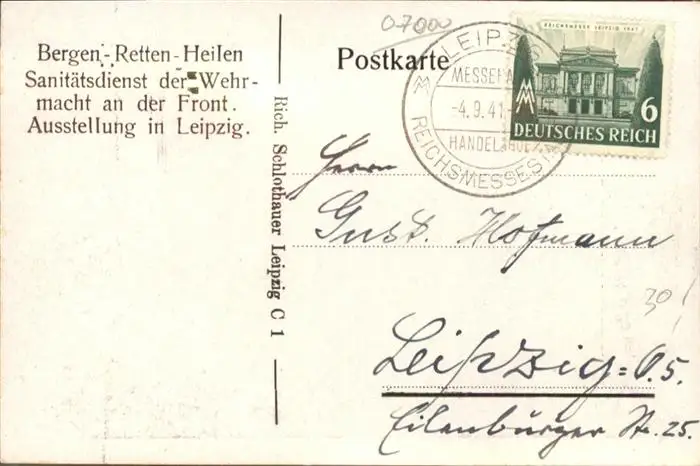 Bergen-Retten-Heilen
Sanitätsdienst der Wehr-
macht an der Front.
Ausstellung in Leipzig.
Rich. Schlothauer Leipzig C 1
07000
Postkarte
LEIPZIG
MESSEPA
-4.9.41
HANDELSHOF
REICHSMESSEST
REICHSMESSE LEIPZIG 1941
6
DEUTSCHES REICH
Herrn
Gust. Hofmann
30
Leipzig=O.5.
Eilenburger Str. 25.